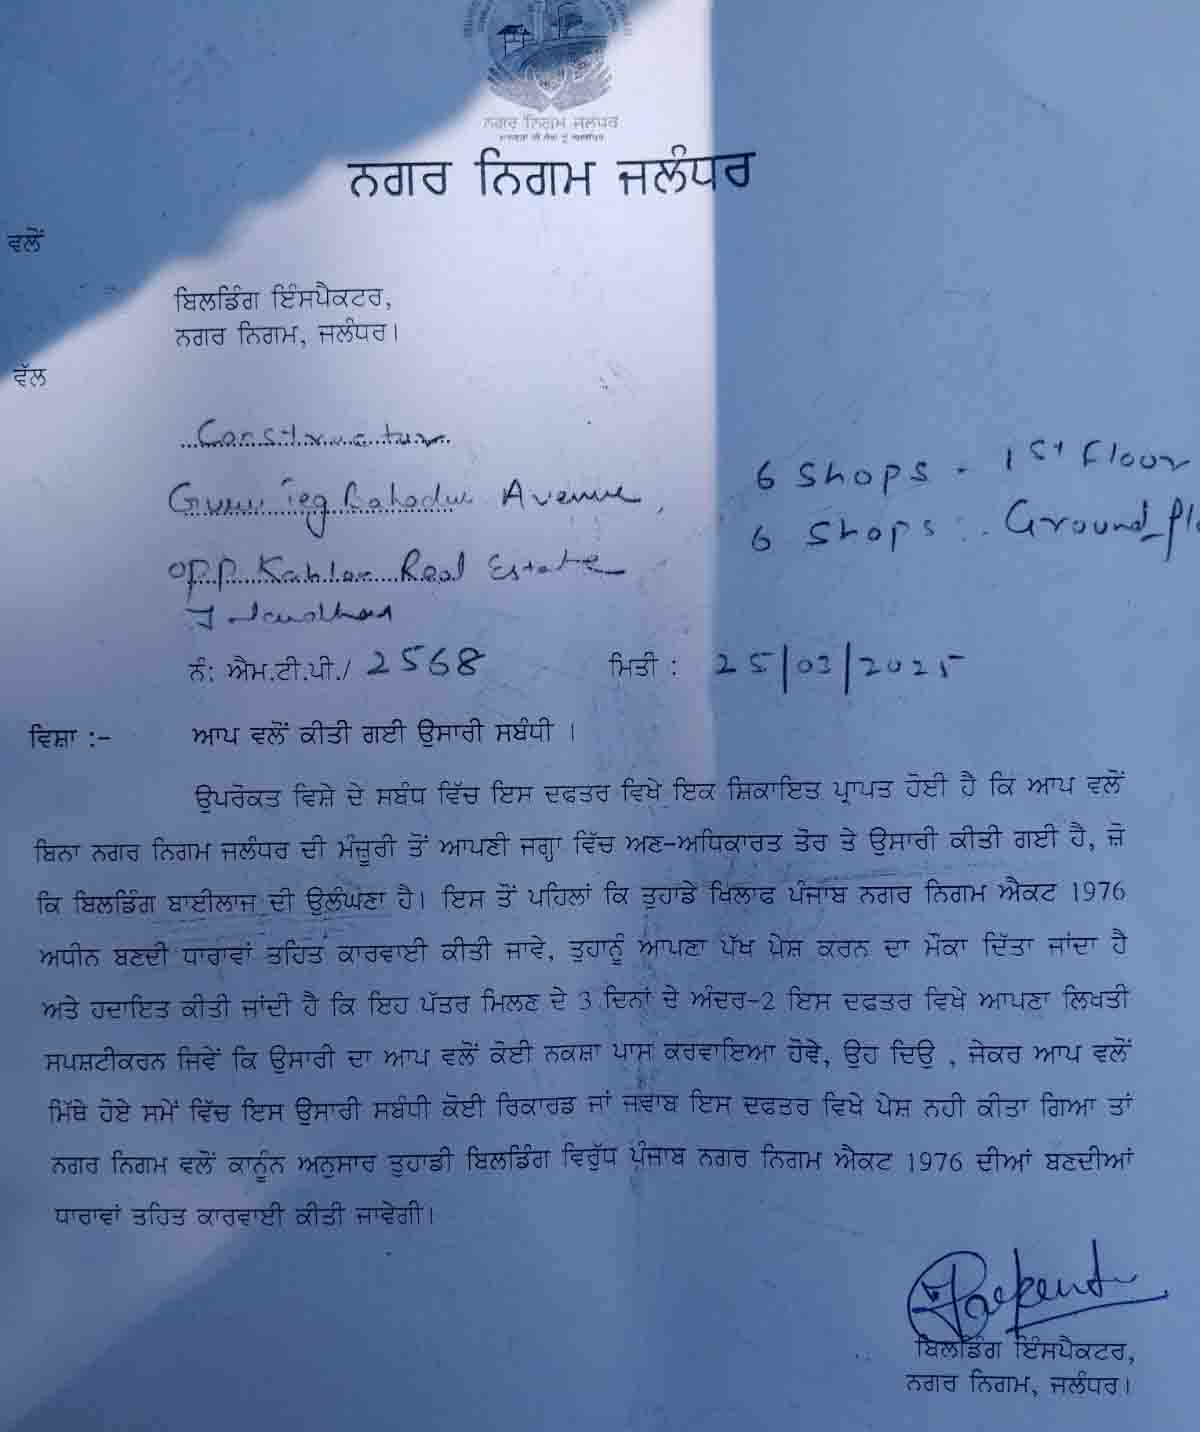 ਨਗਰ ਨਿਗਮ ਜਲੰਧਰ
ਨਗਰ ਨਿਗਮ ਜਲੰਧਰ
ਵਲੋਂ
ਬਿਲਡਿੰਗ ਇੰਸਪੈਕਟਰ,
ਨਗਰ ਨਿਗਮ, ਜਲੰਧਰ।
ਵੱਲ
Construction
Guru Teg Bahadur Avenue,
6 Shops - 1st Floor
6 Shops :- Ground
opp Kahlon Real Estate
Jalandhar
ਨੰ: ਐਮ.ਟੀ.ਪੀ./ 2568 ਮਿਤੀ : 25/03/2025
ਵਿਸ਼ਾ :- ਆਪ ਵਲੋਂ ਕੀਤੀ ਗਈ ਉਸਾਰੀ ਸਬੰਧੀ ।
ਉਪਰੋਕਤ ਵਿਸ਼ੇ ਦੇ ਸਬੰਧ ਵਿੱਚ ਇਸ ਦਫਤਰ ਵਿਖੇ ਇਕ ਸ਼ਿਕਾਇਤ ਪ੍ਰਾਪਤ ਹੋਈ ਹੈ ਕਿ ਆਪ ਵਲੋਂ
ਬਿਨਾ ਨਗਰ ਨਿਗਮ ਜਲੰਧਰ ਦੀ ਮੰਜ਼ੂਰੀ ਤੋਂ ਆਪਣੀ ਜਗ੍ਹਾ ਵਿੱਚ ਅਣ-ਅਧਿਕਾਰਤ ਤੋਰ ਤੇ ਉਸਾਰੀ ਕੀਤੀ ਗਈ ਹੈ, ਜੋ
ਕਿ ਬਿਲਡਿੰਗ ਬਾਈਲਾਜ ਦੀ ਉਲੰਘਣਾ ਹੈ। ਇਸ ਤੋਂ ਪਹਿਲਾਂ ਕਿ ਤੁਹਾਡੇ ਖਿਲਾਫ ਪੰਜਾਬ ਨਗਰ ਨਿਗਮ ਐਕਟ 1976
ਅਧੀਨ ਬਣਦੀ ਧਾਰਾਵਾਂ ਤਹਿਤ ਕਾਰਵਾਈ ਕੀਤੀ ਜਾਵੇ, ਤੁਹਾਨੂੰ ਆਪਣਾ ਪੱਖ ਪੇਸ਼ ਕਰਨ ਦਾ ਮੌਕਾ ਦਿੱਤਾ ਜਾਂਦਾ ਹੈ
ਅਤੇ ਹਦਾਇਤ ਕੀਤੀ ਜਾਂਦੀ ਹੈ ਕਿ ਇਹ ਪੱਤਰ ਮਿਲਣ ਦੇ 3 ਦਿਨਾਂ ਦੇ ਅੰਦਰ-2 ਇਸ ਦਫਤਰ ਵਿਖੇ ਆਪਣਾ ਲਿਖਤੀ
ਸਪਸ਼ਟੀਕਰਨ ਜਿਵੇਂ ਕਿ ਉਸਾਰੀ ਦਾ ਆਪ ਵਲੋਂ ਕੋਈ ਨਕਸ਼ਾ ਪਾਸ ਕਰਵਾਇਆ ਹੋਵੇ, ਉਹ ਦਿਉ , ਜੇਕਰ ਆਪ ਵਲੋਂ
ਮਿੱਥੇ ਹੋਏ ਸਮੇਂ ਵਿੱਚ ਇਸ ਉਸਾਰੀ ਸਬੰਧੀ ਕੋਈ ਰਿਕਾਰਡ ਜਾਂ ਜਵਾਬ ਇਸ ਦਫਤਰ ਵਿਖੇ ਪੇਸ਼ ਨਹੀ ਕੀਤਾ ਗਿਆ ਤਾਂ
ਨਗਰ ਨਿਗਮ ਵਲੋਂ ਕਾਨੂੰਨ ਅਨੁਸਾਰ ਤੁਹਾਡੀ ਬਿਲਡਿੰਗ ਵਿਰੁੱਧ ਪੰਜਾਬ ਨਗਰ ਨਿਗਮ ਐਕਟ 1976 ਦੀਆਂ ਬਣਦੀਆਂ
ਧਾਰਾਵਾਂ ਤਹਿਤ ਕਾਰਵਾਈ ਕੀਤੀ ਜਾਵੇਗੀ।
ਬਿਲਡਿੰਗ ਇੰਸਪੈਕਟਰ,
ਨਗਰ ਨਿਗਮ, ਜਲੰਧਰ।